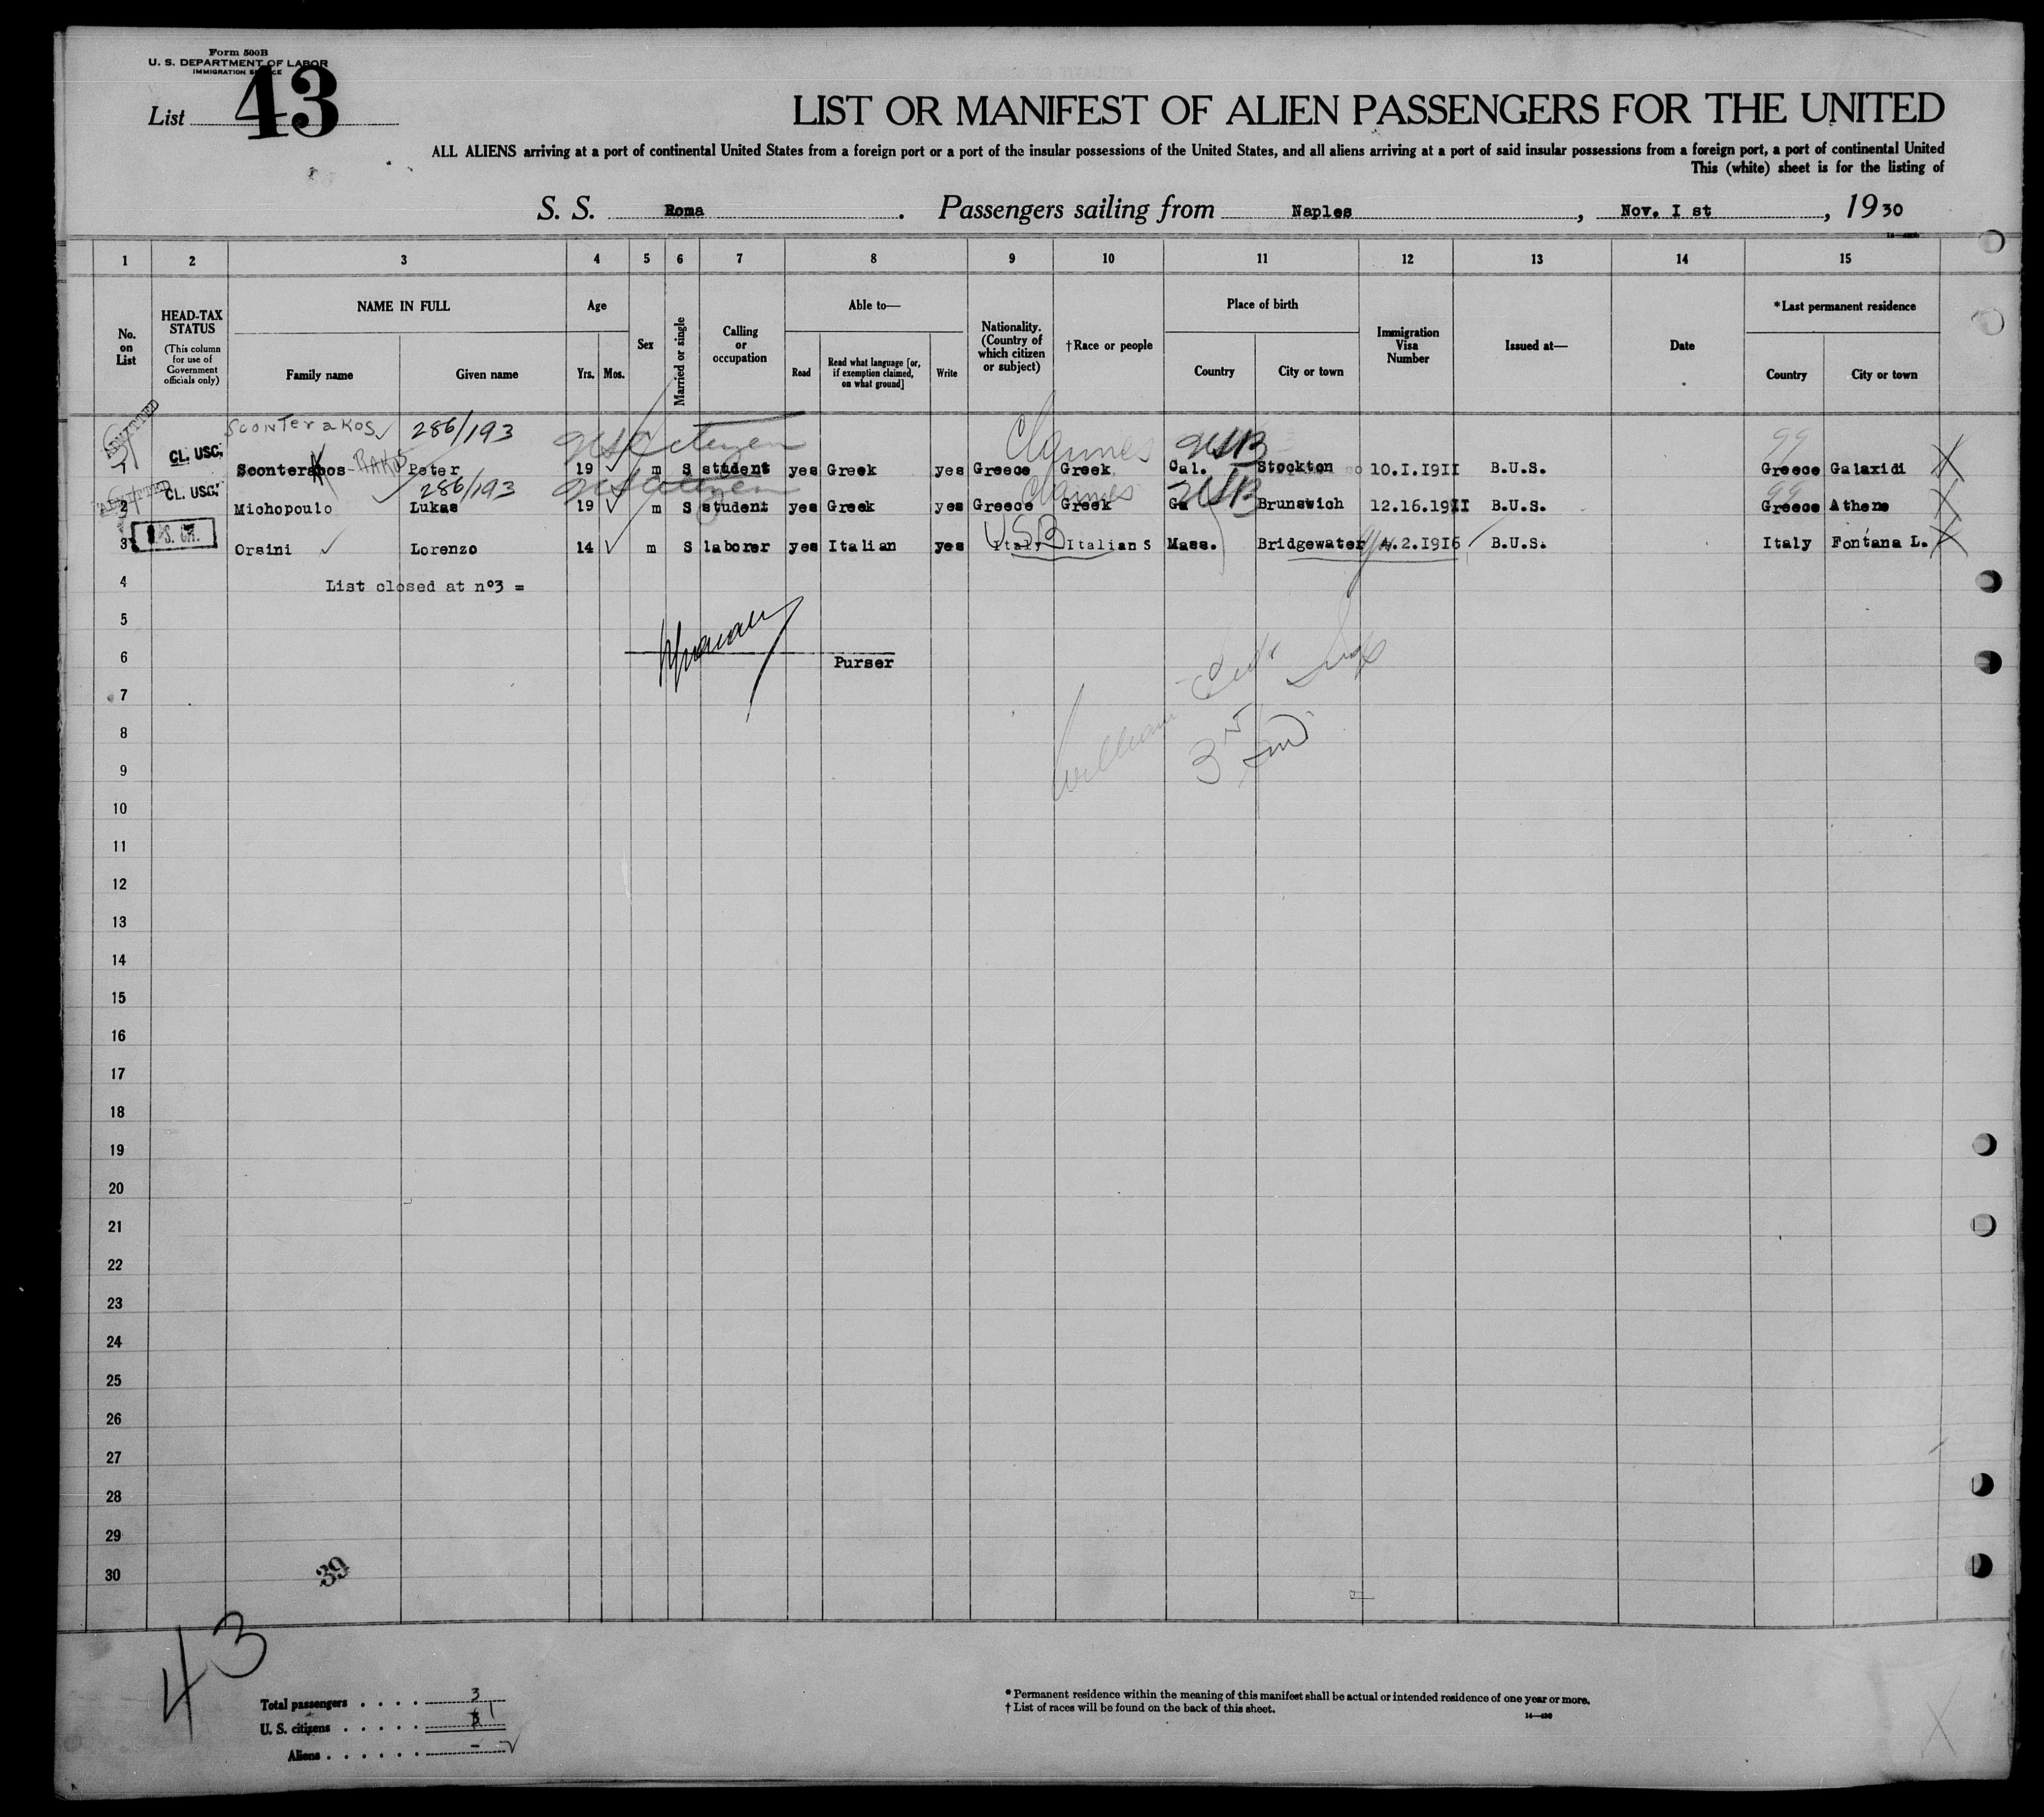 Form 500B
U. S. DEPARTMENT OF LABOR
IMMIGRATION SERVICE
List 43
LIST OR MANIFEST OF ALIEN PASSENGERS FOR THE UNITED
ALL ALIENS arriving at a port of continental United States from a foreign port or a port of the insular possessions of the United States, and all aliens arriving at a port of said insular possessions from a foreign port, a port of continental United
This (white) sheet is for the listing of
S. S. Roma. Passengers sailing from Naples, Nov. I st, 1930
1 2 3 4 5 6 7 8 9 10 11 12 13 14 15
No. on List
HEAD-TAX STATUS
(This column for use of Government officials only)
NAME IN FULL
Family name Given name
Age
Yrs. Mos.
Sex
Married or single
Calling or occupation
Able to—
Read
Read what language [or, if exemption claimed, on what ground]
Write
Nationality. (Country of which citizen or subject)
†Race or people
Place of birth
Country City or town
Immigration Visa Number
Issued at—
Date
*Last permanent residence
Country City or town
ADMITTED Sconterakos 286/193 US Citizen Claimes USB 99
1 CL. USC. Sconterahos -RAKOS Peter 19 m S student yes Greek yes Greece Greek Cal. Stockton 10.I.19II B.U.S. Greece Galaxidi
ADMITTED 286/193 US Citizen Claimes USB 99
2 CL. USC. Michopoulo Lukas 19 m S student yes Greek yes Greece Greek Ga Brunswich 12.16.19II B.U.S. Greece Athene
USB
3 Orsini Lorenzo 14 m S laborer yes Italian yes Italy Italian S Mass. Bridgewater 4.2.1916 B.U.S. Italy Fontana L.
4 List closed at nº3 =
5
6 Purser
7
8 William 3
9
10
11
12
13
14
15
16
17
18
19
20
21
22
23
24
25
26
27
28
29
30
39
43
Total passengers 3
U. S. citizens 1
Aliens -
* Permanent residence within the meaning of this manifest shall be actual or intended residence of one year or more.
† List of races will be found on the back of this sheet.
14—430